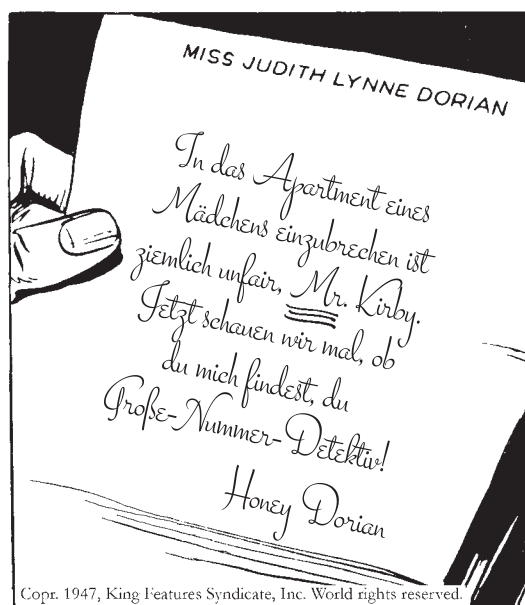 MISS JUDITH LYNNE DORIAN
In das Apartment eines
Mädchens einzubrechen ist
ziemlich unfair, Mr. Kirby.
Jetzt schauen wir mal, ob
du mich findest, du
Große-Nummer-Detektiv!
Honey Dorian
Copr. 1947, King Features Syndicate, Inc. World rights reserved.